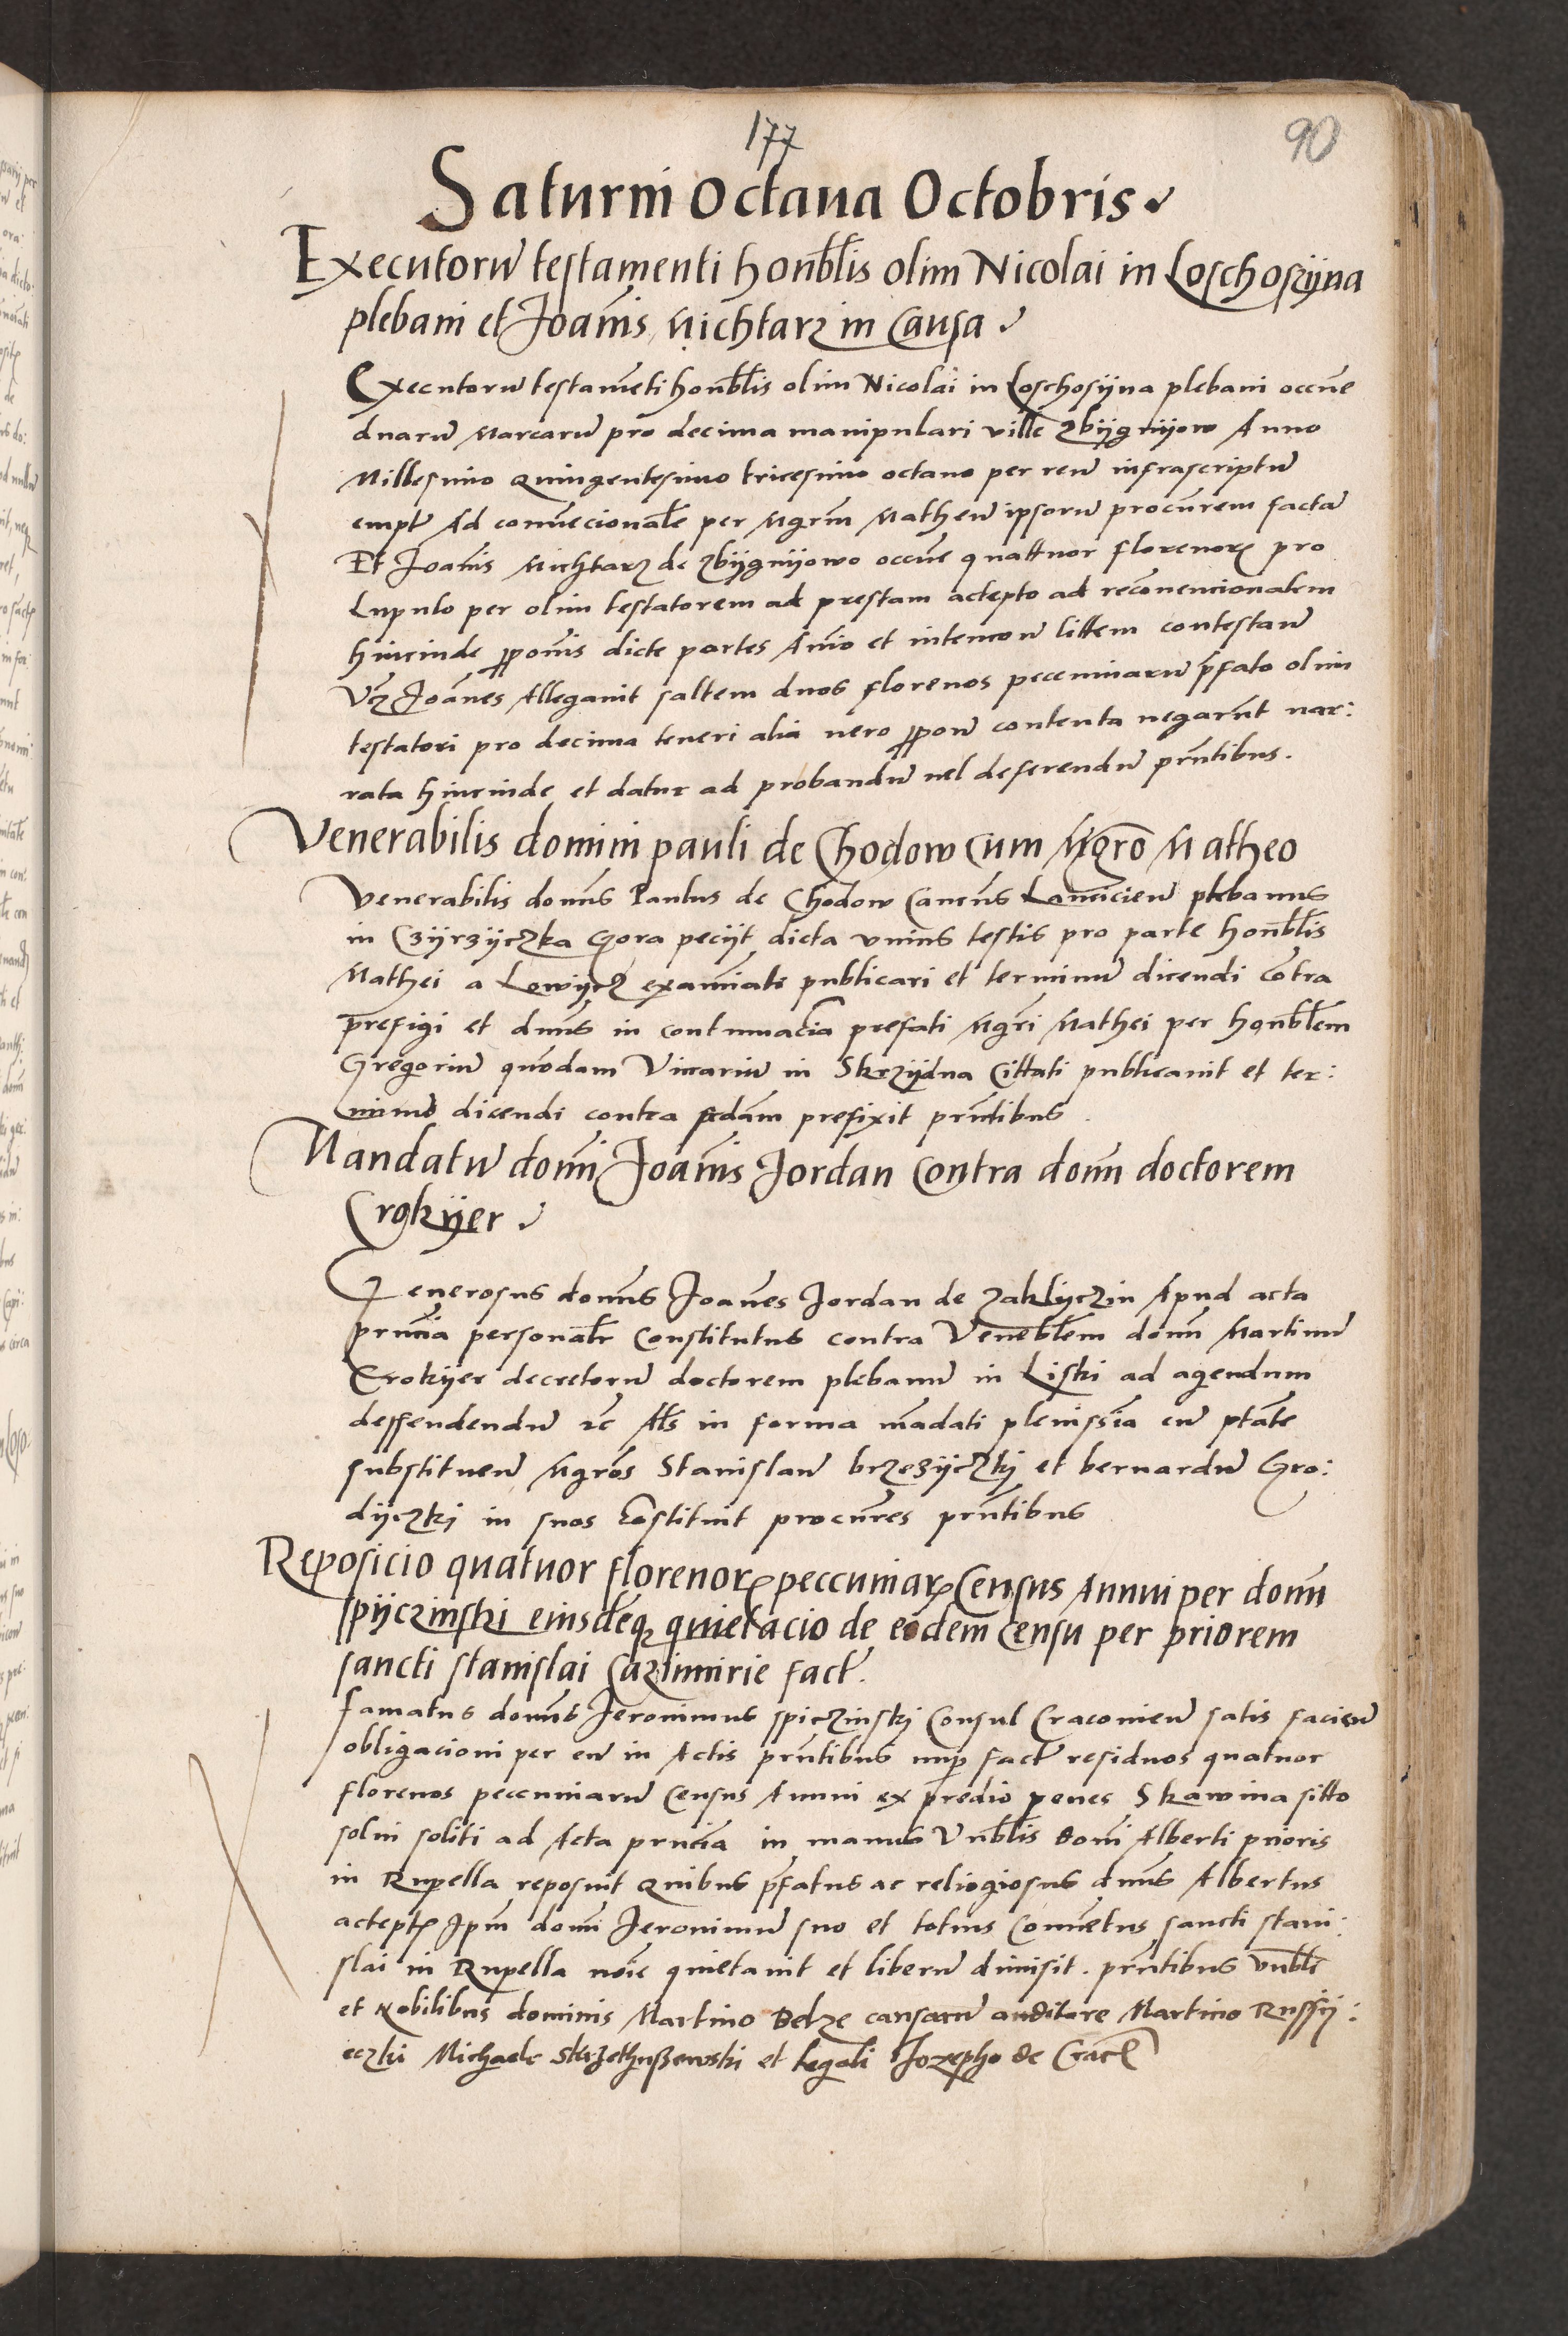 177
90
Saturni Octaua Octobris
Executorū testamenti honb̄lis olim Nicolai in Loschoszÿna
plebani et Joan̄is Michtarz in Causa
Executorū testam̄eti honb̄lis olim Nicolai in Loschosÿna plebani occ̄ne
duarū Marcarū pro decima manipulari ville Zbÿgnÿow Anno
Millesimo Quingentesimo tricesimo octauo per reū infrascriptū
empt̄ Ad conuēcional̄e per Mgrm̄ Matheū ipsorū procūrem factā
Et Joan̄is Michtarz de Zbÿgnÿowo occ̄ne quattuor florenorꝝ pro
Lupulo per olim testatorem ad prestam accepto ad recōnencionalem
hincinde ꝓpom̄is dicte partes Anīo et intencōn littem contestan̄
Vcꝫ Joānes Allegauit saltem duos florenos peccuniarū p̄fato olim
testatori pro decima teneri alia uero ꝓpon̄ contenta negarūt nar:
rata hincinde et datur ad probandū uel deferendū pn̄tibus.
Venerabilis domini pauli de Chodow cum Mgrō Matheo
Venerabilis domn̄s Paulus de Chodow Cancn̄s Lanniciēn plebanus
in Czÿrzÿczka Gora peciÿt dicta vnius testis pro parte honb̄lis
Mathei a Lowÿcz examīati publicari et terminū dicendi cōtra
prefigi et dnn̄s in contumacīa prefati Mgr̄i Mathei per honb̄lem
Gregoriū quōdam Vicariū in Skrzÿdna Cittati publicauit et ter:
minū dicendi contra scdām prefixit pn̄tibus
Mandatū domn̄i Joan̄is Jordan Contra domn̄ doctorem
Crokÿer
Generosus domn̄s Joānes Jordan de Zaklÿczin Apud acta
pn̄cia personal̄r Constitutus contra Veneb̄lem domn̄ Martinū
Crokÿer decretorū doctorem plebanū in Liski ad agendum
deffendendū ⁊c Al̄s in forma mādati plenissīa cū ptāte
substituen̄ Mgrōs Stanislaū brzezÿczkj et bernardū Gro:
dÿczkj in suos cōstituit procūres pn̄tibus
Reposicio quatuor florenorꝝ peccuniarꝝ Census Annui per domn̄
spÿczinski eiusdēqꝫ quietacio de eodem censu per priorem
sancti stanislai Cazimirie fact̄.
famatus domn̄s Jeronimus spiczinskj Consul Cracouien̄ satis facien̄
obligacioni per eū in Actis pn̄tibus nuꝑ fact̄ residuos quatuor
florenos peccuniarū Census Annui ex predio penes Skawina sitto
solui soliti ad Acta pn̄cia in manus Vnb̄lis domi Alberti prioris
in Rupella reposuit Quibus p̄fatus ac religiosus dnn̄s Albertus
acceptꝭ Ipm̄ domn̄ Jeronimū suo et totius Conuētus sancti stani:
slai in Rupella nōie quietauit et liberū dimisit. pn̄tibus vnb̄li
et Nobilibus dominis Martino Belze causarū auditore Martino Russÿ:
eczki Michaele Skrzethuszewski et legali Jozepho de